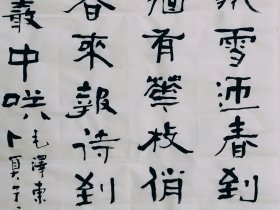 雪迎春到
有華枝俏
春來報待到
叢中咲
毛澤東
卜算子